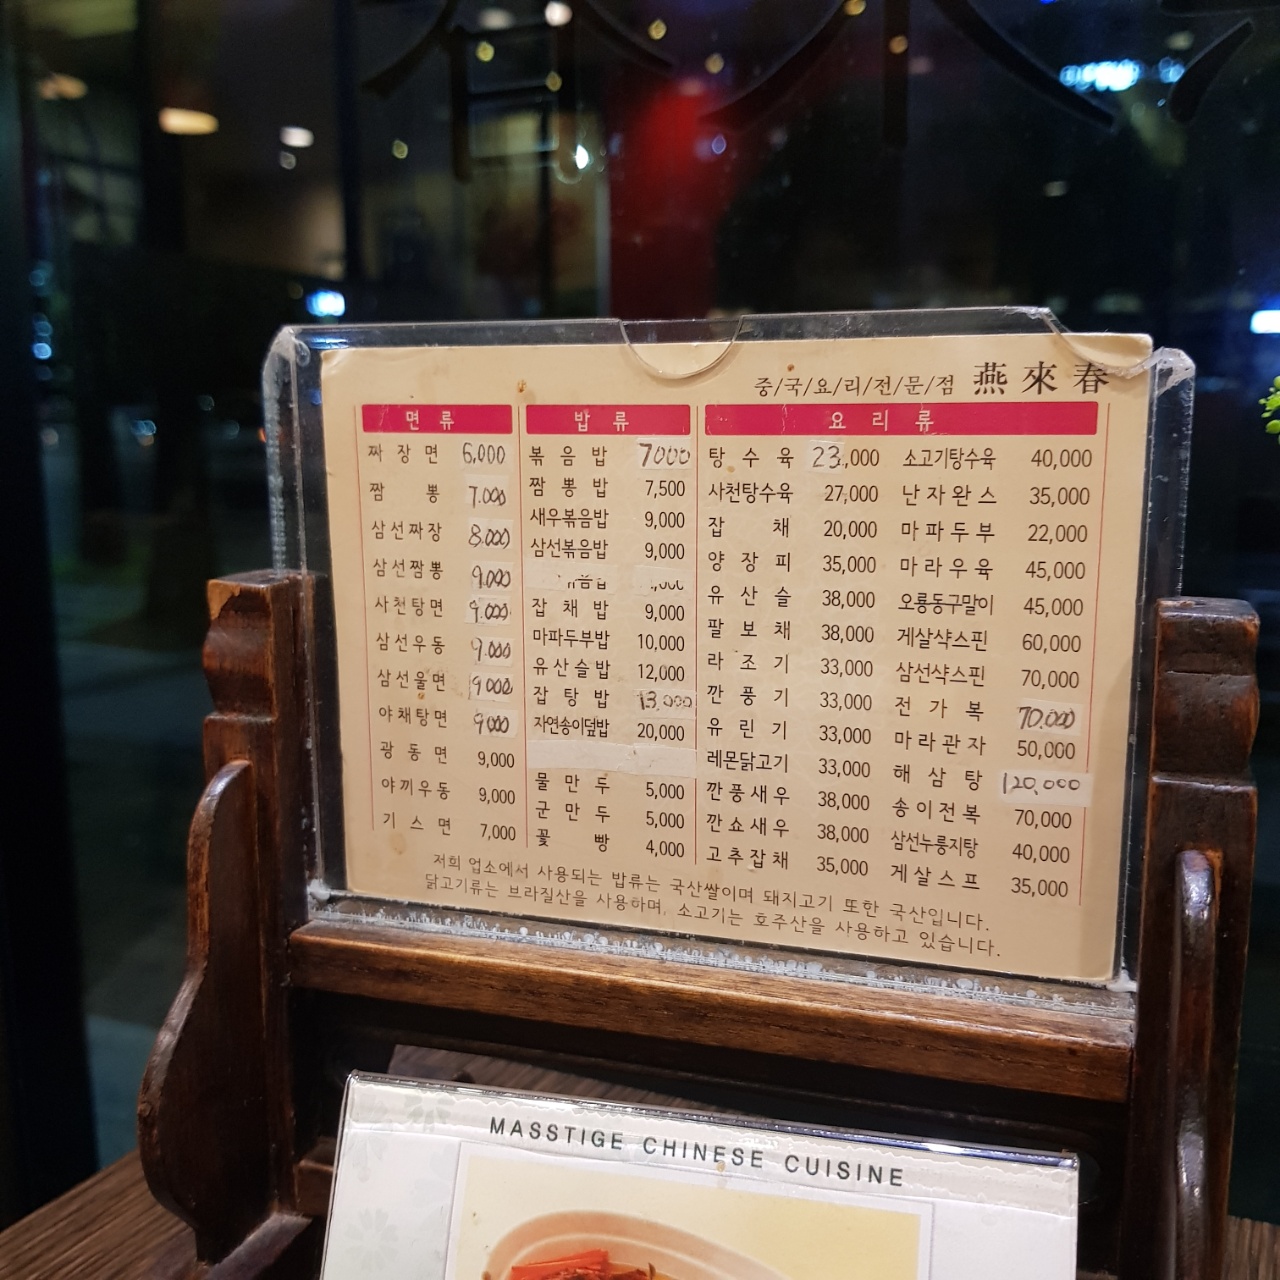 중/국/요/리/전/문/점 燕來春
면 류
짜 장 면 6,000
짬 뽕 7.000
삼선짜장 8.000
삼선짬뽕 9.000
사천탕면 9.000
삼선우동 9.000
삼선울면 9000
야채탕면 9000
광 동 면 9,000
야끼우동 9,000
기 스 면 7,000
밥 류
볶 음 밥 7000
짬 뽕 밥 7,500
새우볶음밥 9,000
삼선볶음밥 9,000
잡 채 밥 9,000
마파두부밥 10,000
유산슬밥 12,000
잡 탕 밥 13,000
자연송이덮밥 20,000
물 만 두 5,000
군 만 두 5,000
꽃 빵 4,000
요 리 류
탕 수 육 23,000
사천탕수육 27,000
잡 채 20,000
양 장 피 35,000
유 산 슬 38,000
팔 보 채 38,000
라 조 기 33,000
깐 풍 기 33,000
유 린 기 33,000
레몬닭고기 33,000
깐풍새우 38,000
깐쇼새우 38,000
고추잡채 35,000
소고기탕수육 40,000
난자완스 35,000
마파두부 22,000
마라우육 45,000
오룡동구말이 45,000
게살샥스핀 60,000
삼선샥스핀 70,000
전 가 복 70.000
마라관자 50,000
해 삼 탕 120.000
송이전복 70,000
삼선누룽지탕 40,000
게살스프 35,000
저희 업소에서 사용되는 밥류는 국산쌀이며 돼지고기 또한 국산입니다.
닭고기류는 브라질산을 사용하며, 소고기는 호주산을 사용하고 있습니다.
MASSTIGE CHINESE CUISINE